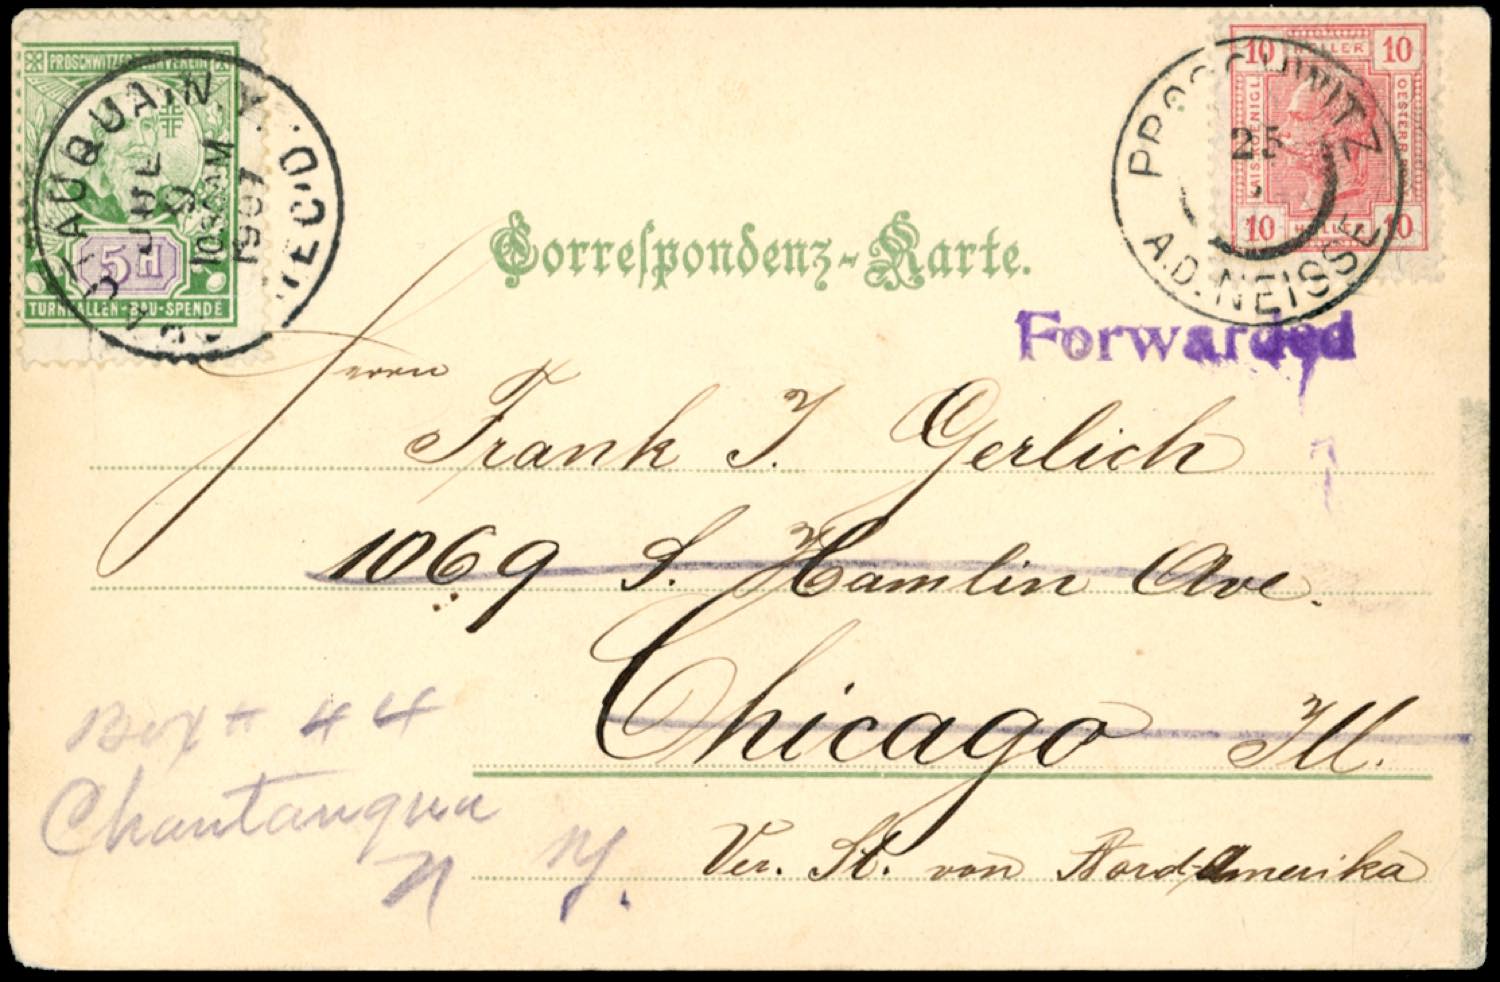 PROSCHWITZER TURNVEREIN
5H
TURNHALLEN-BAU-SPENDE
CHAUTAUQUA, N.Y.
REC'D.
JUL
10 30 AM
1907
10 HELLER 10
10 HELLER 10
PROSCHWITZ
25
A.D. NEISSE
Correspondenz-Karte.
Forwarded
Herrn
Frank J. Gerlich
1069 S. Hamlin Ave.
Chicago Ill.
Ver. St. von Nord-Amerika
Box # 44
Chautauqua
N Y.